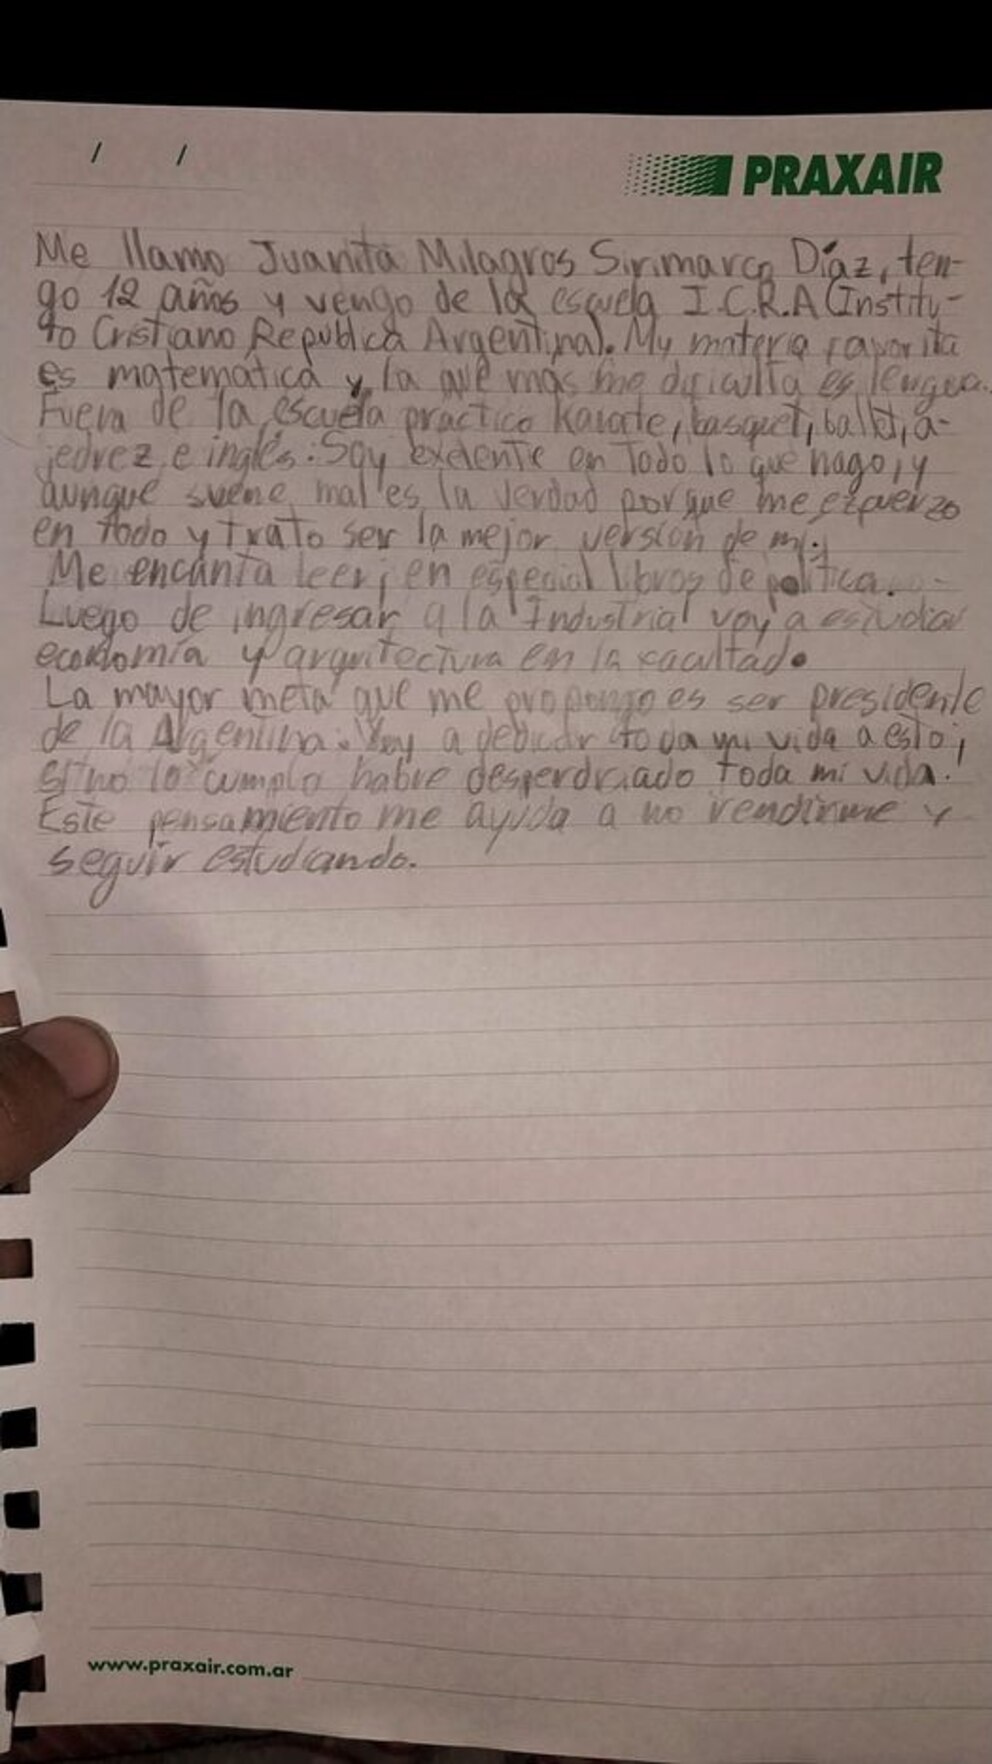 / /
PRAXAIR
Me llamo Juanita Milagros Sirimarco Díaz, ten-
go 12 años y vengo de la escuela I.C.R.A (Institu-
to Cristiano Republica Argentina). My materia favorita
es matematica y la que más me dificulta es lengua.
Fuera de la escuela practico Karate, basquet, ballet, a-
jedrez e inglés. Soy exelente en todo lo que hago, y
aunque suene mal es la verdad porque me ezfuerzo
en todo y trato ser la mejor versión de mi.
Me encanta leer, en especial libros de política.
Luego de ingresar a la Industrial voy a estudiar
economía y arquitectura en la facultad.
La mayor meta que me propongo es ser presidente
de la Argentina. Voy a dedicar toda mi vida a esto,
si no lo cumplo habre desperdiciado toda mi vida.
Este pensamiento me ayuda a no rendirme y
seguir estudiando.
www.praxair.com.ar